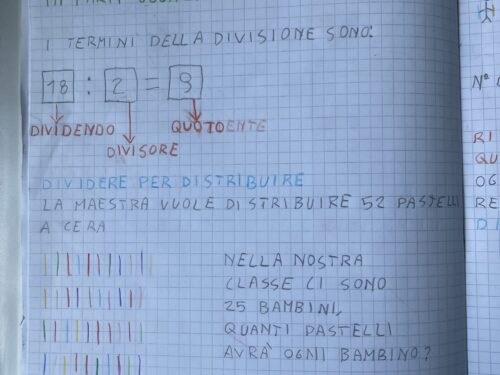 I TERMINI DELLA DIVISIONE SONO:
18 : 2 = 9
DIVIDENDO
QUOTOENTE
DIVISORE
DIVIDERE PER DISTRIBUIRE
LA MAESTRA VUOLE DISTRIBUIRE 52 PASTELLI
A CERA
NELLA NOSTRA
CLASSE CI SONO
25 BAMBINI,
QUANTI PASTELLI
AVRÀ OGNI BAMBINO?
N°
RI
QU
OG
RE
DI